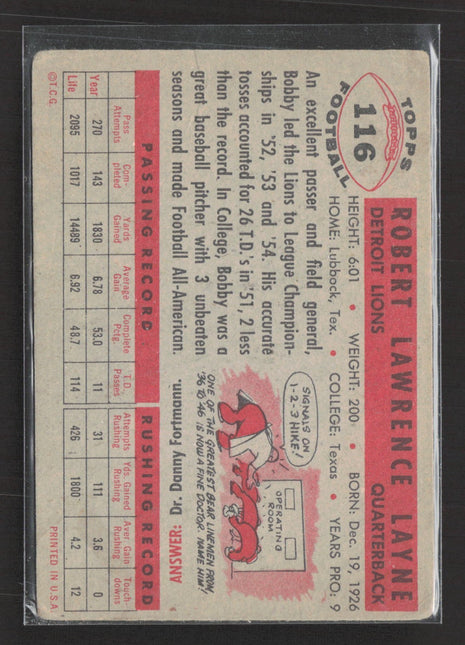 TOPPS
116
FOOTBALL
ROBERT LAWRENCE LAYNE
DETROIT LIONS QUARTERBACK
HEIGHT: 6:01 • WEIGHT: 200 • BORN: Dec. 19, 1926
HOME: Lubbock, Tex. • COLLEGE: Texas • YEARS PRO: 9
An excellent passer and field general,
Bobby led the Lions to League Champion-
ships in '52, '53 and '54. His accurate
tosses accounted for 26 T.D.'s in '51, 2 less
than the record. In College, Bobby was a
great baseball pitcher with 3 unbeaten
seasons and made Football All-American.
SIGNALS ON
1-2-3 HIKE!
OPERATING
ROOM
ONE OF THE GREATEST BEAR LINEMEN FROM,
'36 TO '46 IS NOW A FINE DOCTOR. NAME HIM?
ANSWER: Dr. Danny Fortmann.
PASSING RECORD RUSHING RECORD
Year Pass Attempts Com-pleted Yards Gained Average Gain Complete Pctg. T.D. Passes Attempts Rushing Yds Gained Rushing Aver Gain Rushing Touch-downs
Year 270 143 1830 6.78 53.0 11 31 111 3.6 0
Life 2095 1017 14489 6.92 48.7 114 426 1800 4.2 12
©T.C.G. PRINTED IN U.S.A